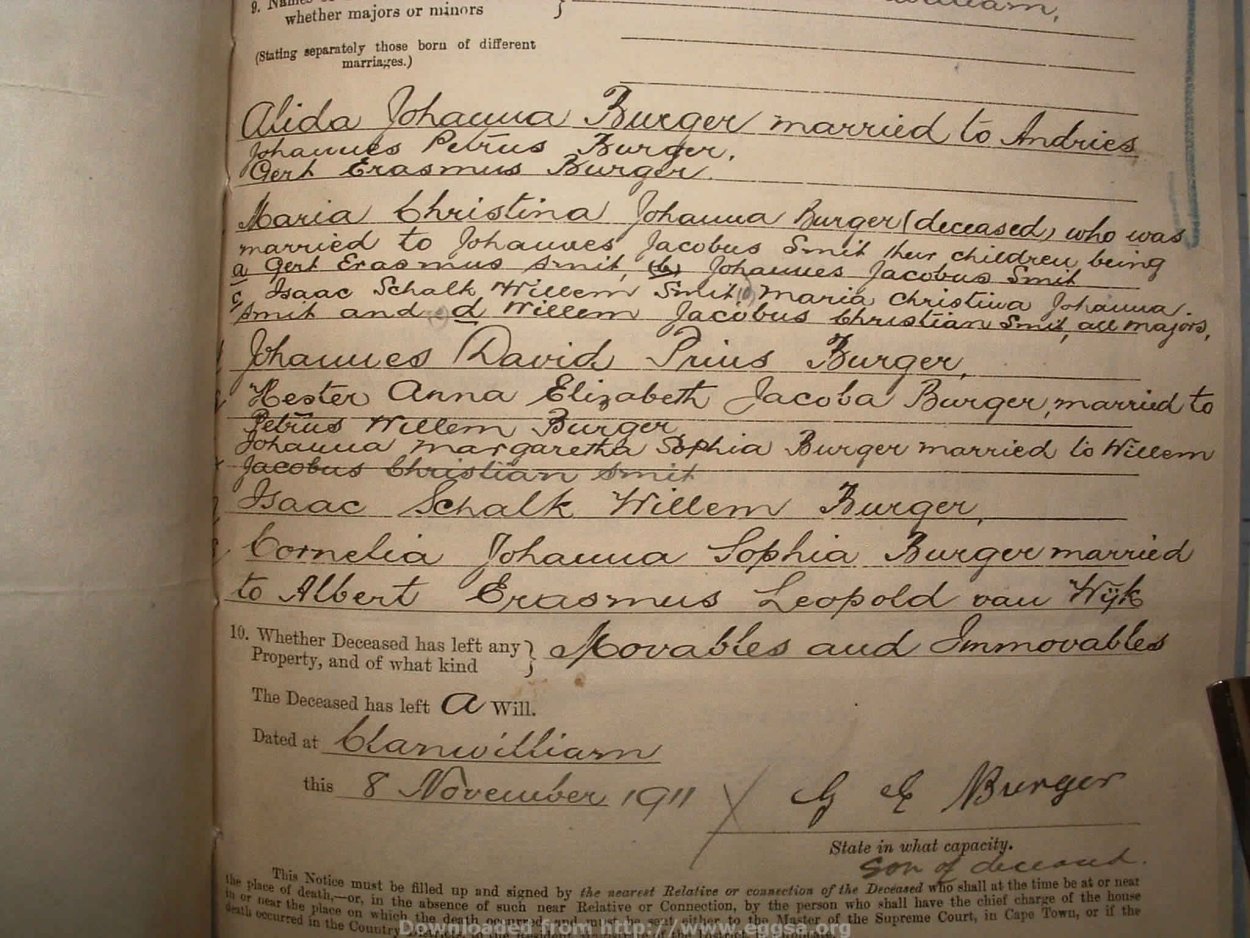 9. Names of
whether majors or minors }
(Stating separately those born of different
marriages.)
Alida Johanna Burger married to Andries
Johannes Petrus Burger.
Gert Erasmus Burger.
Maria Christina Johanna Burger (deceased) who was
married to Johannes Jacobus Smit their children being
a Gert Erasmus Smit, (b) Johannes Jacobus Smit
c Isaac Schalk Willem Smit (d) Maria Christina Johanna
Smit and (e) d Willem Jacobus Christian Smit, all majors,
Johannes David Pius Burger,
Hester Anna Elizabeth Jacoba Burger, married to
Petrus Willem Burger
Johanna Margaretha Sophia Burger married to Willem
Jacobus Christian Smit
Isaac Schalk Willem Burger,
Cornelia Johanna Sophia Burger married
to Albert Erasmus Leopold van Wijk
10. Whether Deceased has left any } Movables and Immovables
Property, and of what kind
The Deceased has left A Will.
Dated at Clanwilliam
this 8 November 1911 X G E Burger
State in what capacity.
Son of deceased.
This Notice must be filled up and signed by the nearest Relative or connection of the Deceased who shall at the time be at or near
the place of death,—or, in the absence of such near Relative or Connection, by the person who shall have the chief charge of the house
in or near the place on which the death occurred, and must be sent either to the Master of the Supreme Court, in Cape Town, or if the
death occurred in the Country
Downloaded from http://www.eggsa.org